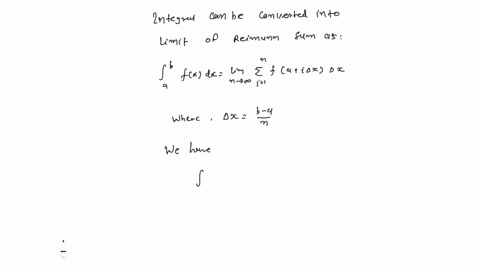 Integral can be converted into
limit of Reimann sum as:
∫_a^b f(x) dx = lim_{n→∞} ∑_{i=1}^{n} f(a+iΔx) Δx
where, Δx = (b-a)/n
We have
∫